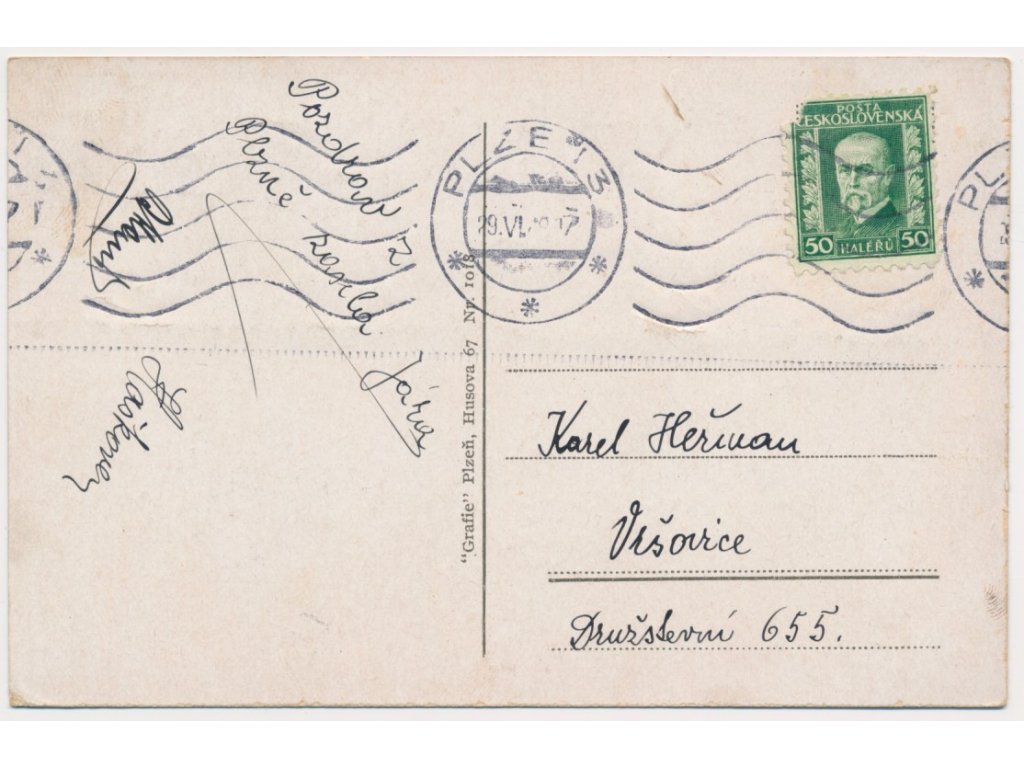 Pozdrav z
Plzně
zasílá
Jára
"Grafie" Plzeň, Husova 67 Np. 1018
PLZEŇ 3
29.VI.
POŠTA
ČESKOSLOVENSKÁ
50 HALÉŘŮ 50
Karel Heřman
Vršovice
Družstevní 655.
PLZ